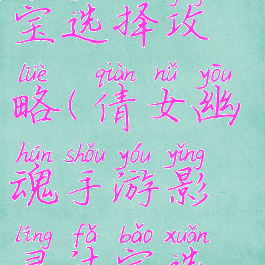 宝选择攻
lüè qiàn nǚ yōu
略(倩女幽
hún shǒu yóu yǐng
魂手游影
líng fǎ bǎo xuǎn
灵法宝选